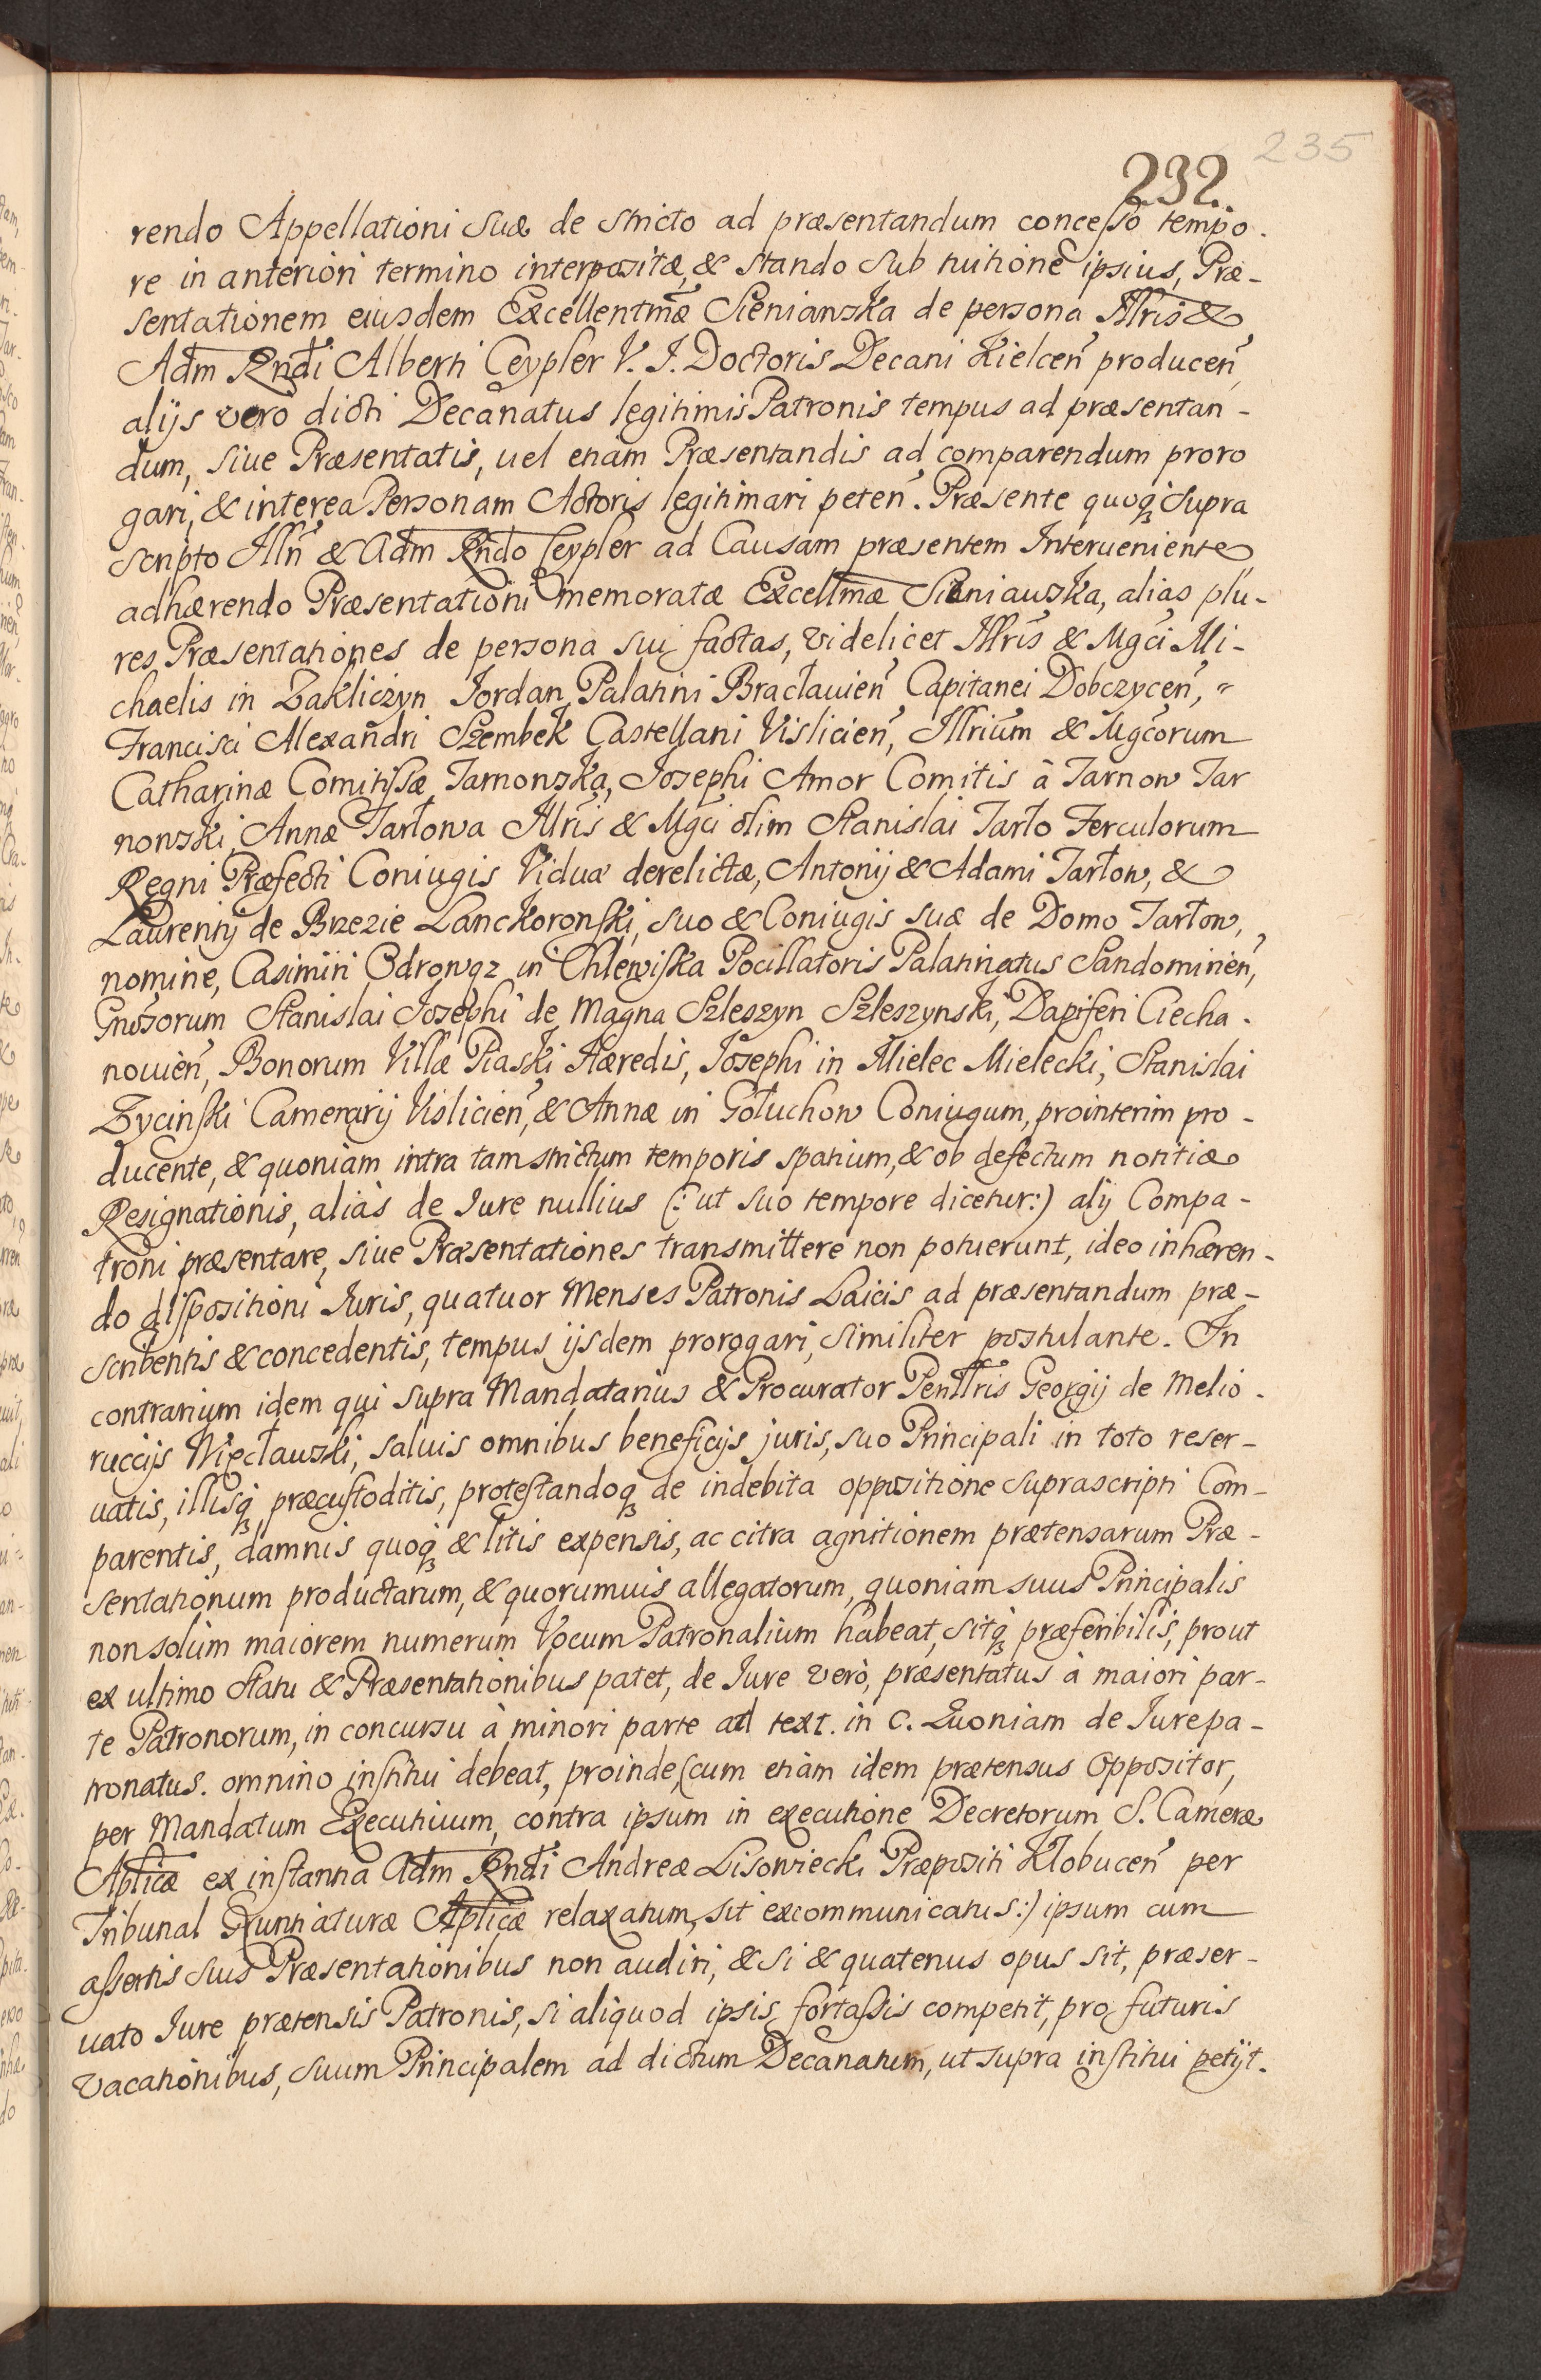 235
232.
rendo Appellationi suæ de stricto ad præsentandum concesso tempo.
re in anteriori termino interpositæ, & stando sub tuitione ipsius, Præ-
sentationem eiusdem Excellentm̃æ Sieniawska de persona Illris &
Adm Rndi Alberti Ceypler V. J. Doctoris Decani Kielceñ produceñ,
alijs verò dicti Decanatus legitimis Patronis tempus ad præsentan-
dum, siue Præsentatis, uel etiam Præsentandis ad comparendum proro
gari, & interea Personam Actoris legitimari peteñ. Præsente quoqꝫ supra
scripto Illñ & Adm Rndo Ceypler ad Causam præsentem Interueniente
adhærendo Præsentationi memoratæ Excellm̃æ Sieniauska, alias plu-
res Præsentationes de persona sui factas, videlicet Illris & Mgci Mi-
chaelis in Zakliczyn Jordan, Palatini Bracłauieñ Capitanei Dobczyceñ,
Francisci Alexandri Szembek Castellani Vislicieñ, Illrium & Mgcorum
Catharinæ Comitissæ Tarnowska, Josephi Amor Comitis à Tarnow Tar
nowski, Annæ Tarłowa Illris & Mgci olim Stanislai Tarło Ferculorum
Regni Præfecti Coniugis Viduæ derelictæ, Antonij & Adami Tarłow, &
Laurentij de Brzezie Lanckoronski, suo & Coniugis suæ de Domo Tarłow,
nomine, Casimiri Odrowąz in Chlewiska Pocillatoris Palatinatus Sandomirieñ,
Gnosorum Stanislai Josephi de Magna Szleszyn Szleszynski, Dapiferi Ciecha.
nouieñ, Bonorum Villæ Piaski Hæredis, Josephi in Mielec Mielecki, Stanislai
Zycinski Camerarij Vislicieñ, & Annæ in Gołuchow Coniugum, prointerim pro-
ducente, & quoniam intra tam strictum temporis spatium, & ob defectum notitiæ
Resignationis, aliàs de Jure nullius (: ut suo tempore dicetur:) alij Compa-
troni præsentare, siue Præsentationes transmittere non potuerunt, ideo inhæren-
do dispositioni Juris, quatuor Menses Patronis Laicis ad præsentandum præ-
scribentis & concedentis, tempus ijsdem prorogari, similiter postulante. In
contrarium idem qui supra Mandatarius & Procurator Penllris Georgij de Melio-
ruccijs Więcłauski, saluis omnibus beneficijs juris, suo Principali in toto reser-
uatis, illisqꝫ præcustoditis, protestandoqꝫ de indebita oppositione suprascripti Com-
parentis, damnis quoqꝫ & litis expensis, ac citra agnitionem prætensarum Præ-
sentationum productarum, & quorumuis allegatorum, quoniam suus Principalis
non solùm maiorem numerum Vocum Patronalium habeat, sitqꝫ præferibilis, prout
ex ultimo Statu & Præsentationibus patet, de Jure verò, præsentatus à maiori par-
te Patronorum, in concursu à minori parte ad text. in C. Quoniam de Jurepa-
tronatus. omnino institui debeat, proinde, (cum etiàm idem prætensus Oppositor,
per Mandatum Executiuum, contra ipsum in executione Decretorum S. Cameræ
Aplicæ ex instantia Adm Rndi Andreæ Lisowiecki Præpositi Kłobuceñ per
Tribunal Nunnaturæ Aplicæ relaxatum, sit excommunicatus:) ipsum cum
assertis suis Præsentationibus non audiri, & si & quatenus opus sit, præser-
uato Jure prætensis Patronis, si aliquod ipsis fortassis competit, pro futuris
vacationibus, suum Principalem ad dictum Decanatum, ut supra institui petijt.